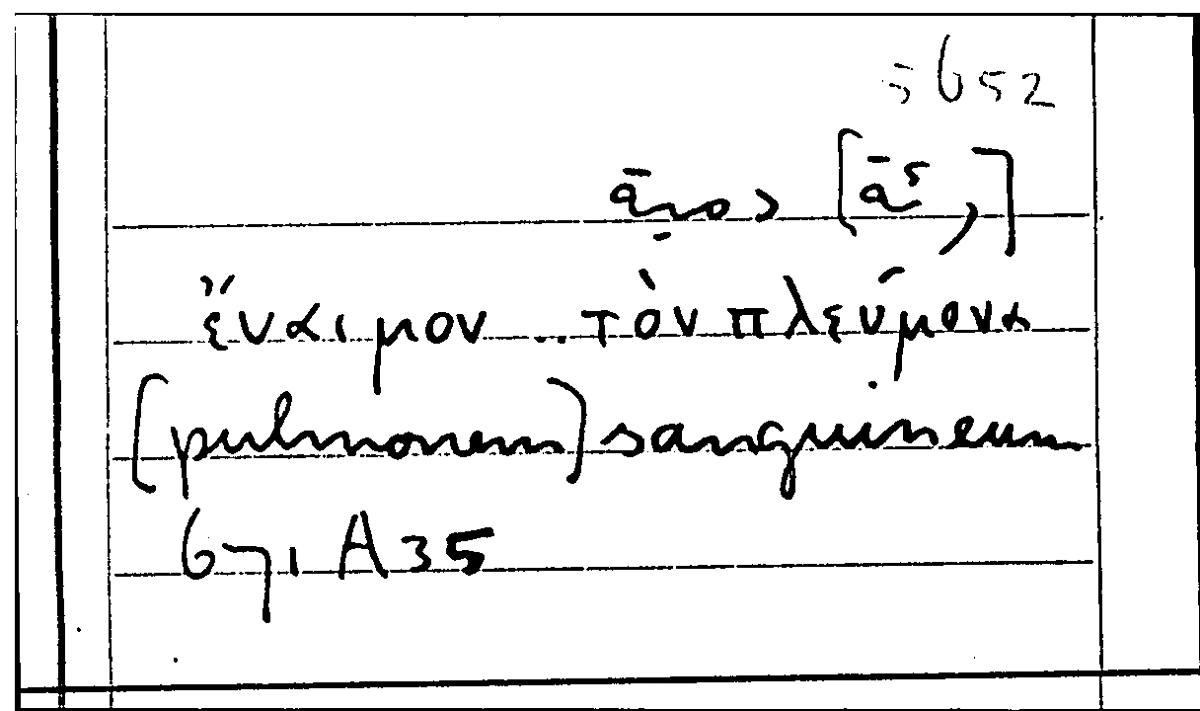 5652
ἔναιμον .. τὸν πλεύμονα
(pulmonem) sanguineum
671 A 35